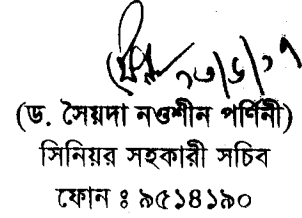 ১৩/৬/১৭
(ড. সৈয়দা নওশীন পর্ণিনী)
সিনিয়র সহকারী সচিব
ফোন ঃ ৯৫১৪১৯০